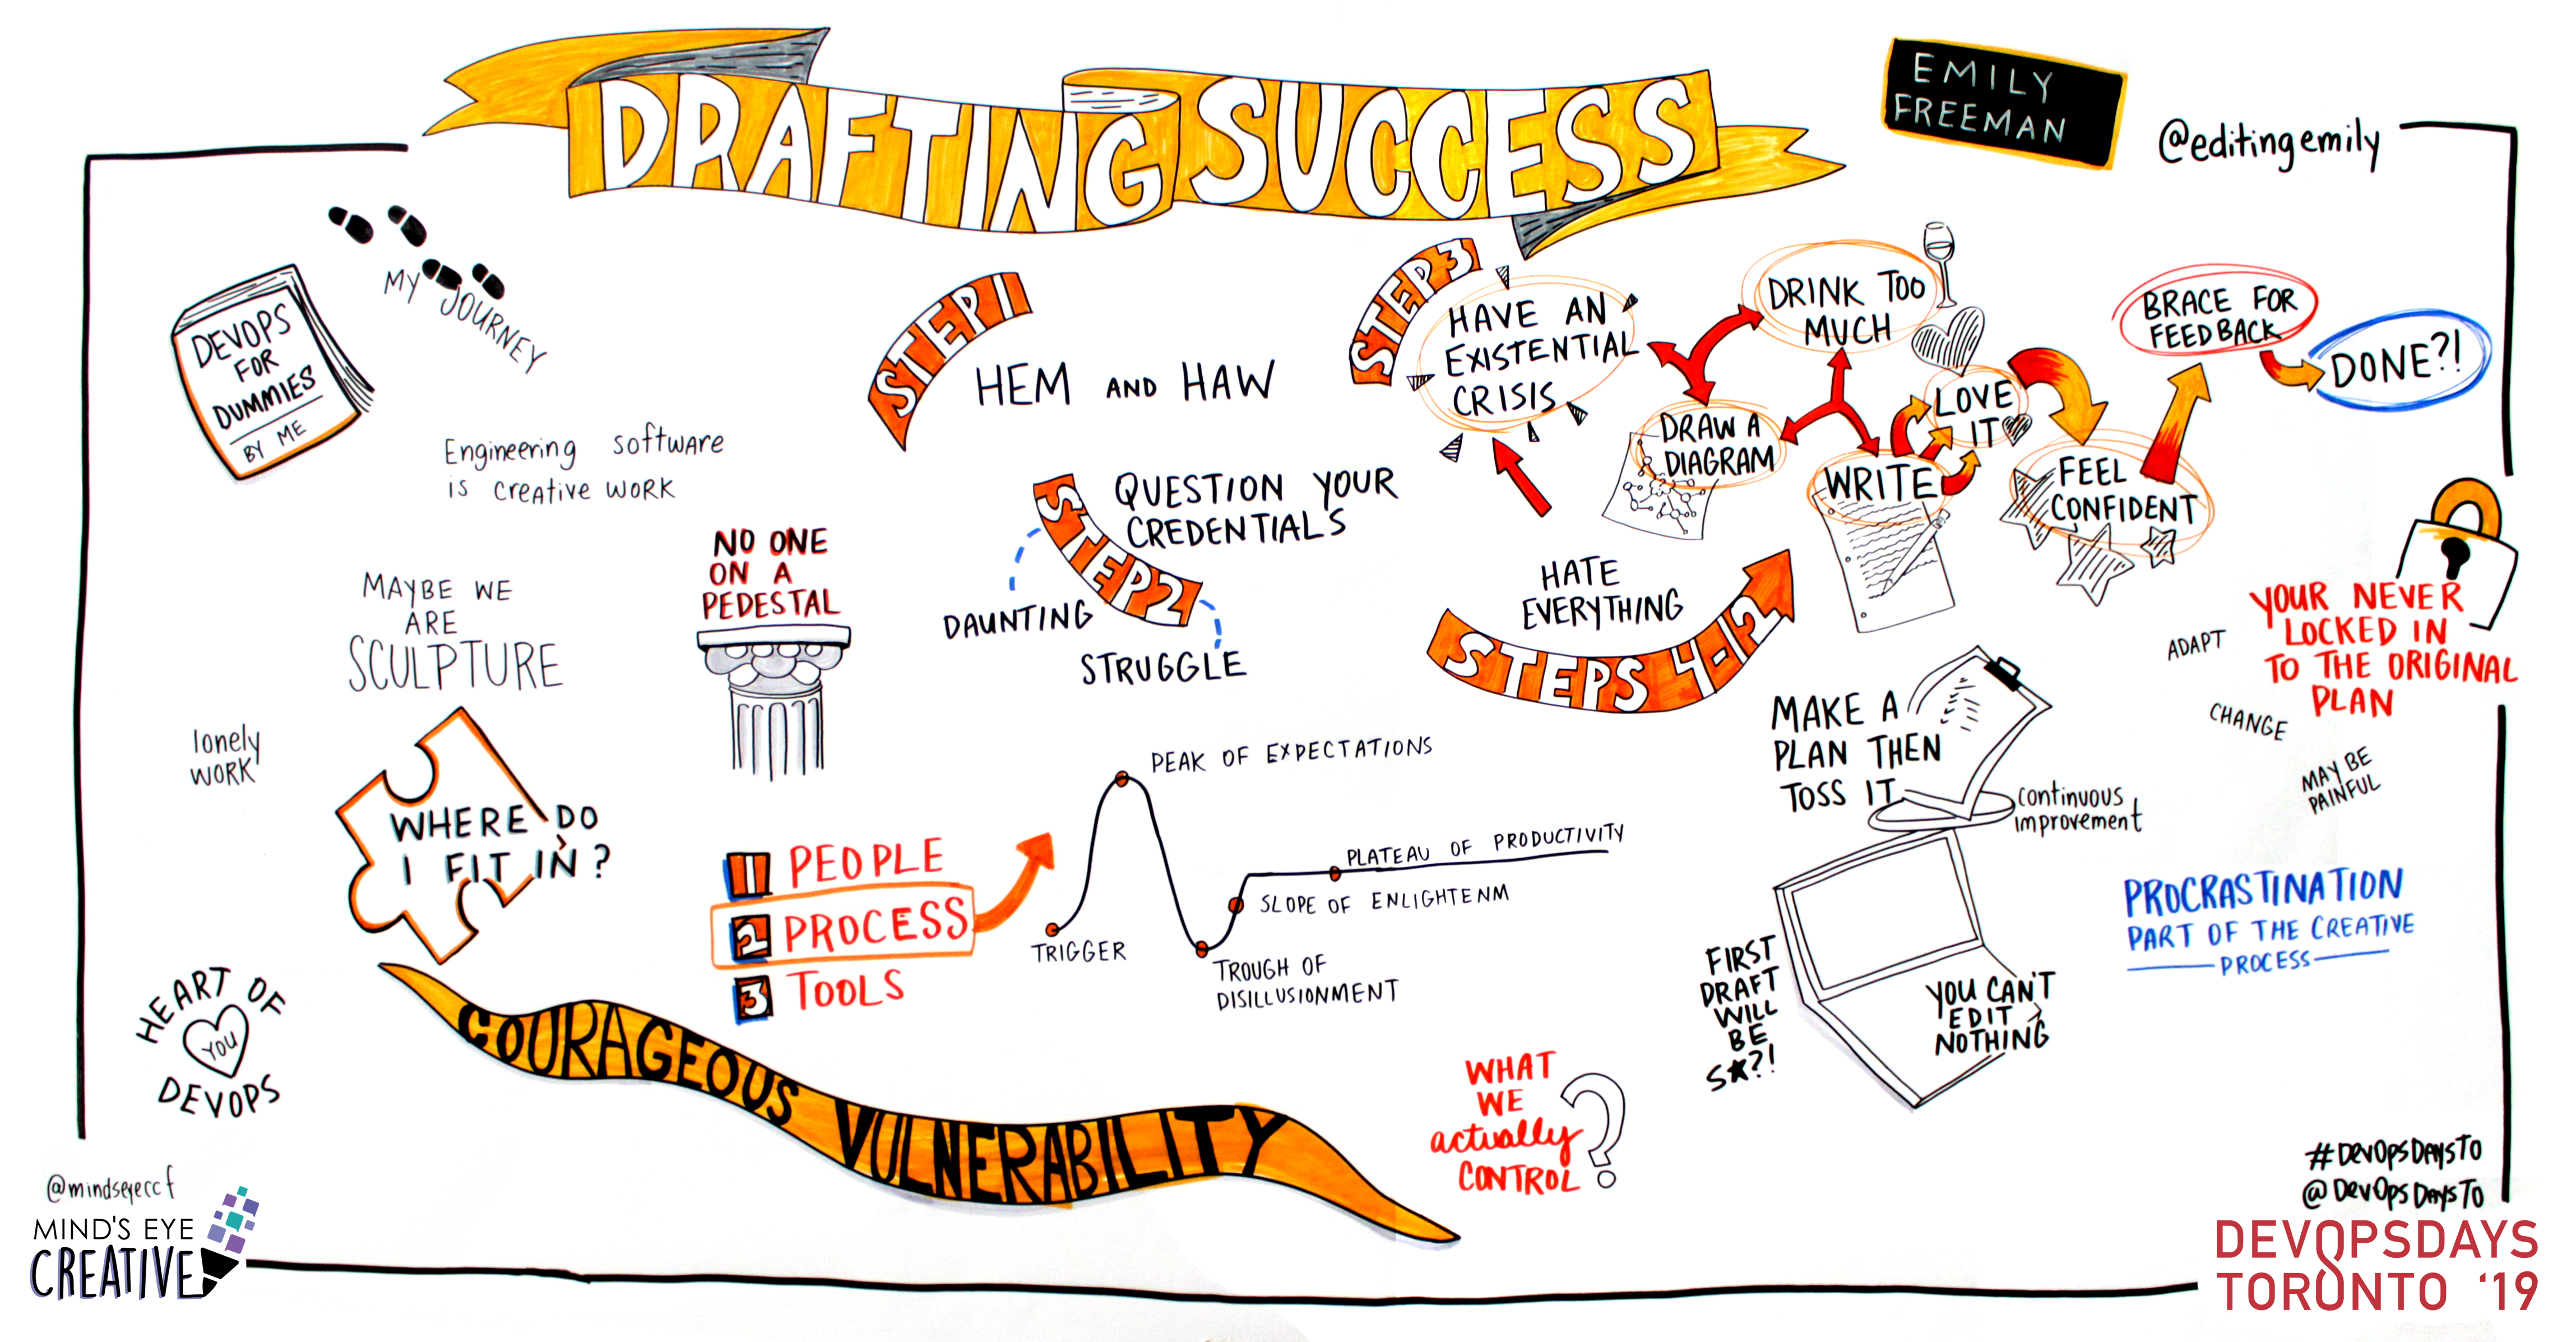 DRAFTING SUCCESS
EMILY
FREEMAN
@editingemily
MY JOURNEY
DEVOPS
FOR
DUMMIES
BY ME
Engineering software
is creative work
MAYBE WE
ARE
SCULPTURE
lonely
WORK
WHERE DO
I FIT IN?
HEART OF
YOU
DEVOPS
NO ONE
ON A
PEDESTAL
STEP 1
HEM AND HAW
STEP 2
QUESTION YOUR
CREDENTIALS
DAUNTING
STRUGGLE
STEP 3
HAVE AN
EXISTENTIAL
CRISIS
DRINK TOO
MUCH
DRAW A
DIAGRAM
WRITE
LOVE
IT
FEEL
CONFIDENT
BRACE FOR
FEEDBACK
DONE?!
HATE
EVERYTHING
STEPS 4-12
1 PEOPLE
2 PROCESS
3 TOOLS
TRIGGER
PEAK OF EXPECTATIONS
TROUGH OF
DISILLUSIONMENT
SLOPE OF ENLIGHTENM
PLATEAU OF PRODUCTIVITY
COURAGEOUS VULNERABILITY
WHAT
WE
actually
CONTROL
?
MAKE A
PLAN THEN
TOSS IT
continuous
improvement
FIRST
DRAFT
WILL
BE
S★?!
YOU CAN'T
EDIT
NOTHING
YOUR NEVER
LOCKED IN
TO THE ORIGINAL
PLAN
ADAPT
CHANGE
MAY BE
PAINFUL
PROCRASTINATION
PART OF THE CREATIVE
PROCESS
@mindseyeccf
MIND'S EYE
CREATIVE
#DevOpsDaysTO
@DevOpsDaysTO
DEVOPSDAYS
TORONTO '19